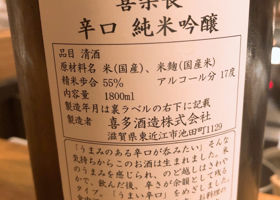 喜楽長
辛口 純米吟醸
品目 清酒
原材料名 米(国産)、米麹(国産米)
精米歩合 55% アルコール分 17度
内容量 1800ml
製造年月は裏ラベルの右下に記載
製造者 喜多酒造株式会社
滋賀県東近江市池田町1129
「うまみのある辛口が呑みたい」そんな
気持ちからこのお酒は生まれました。米
のうまみを感じられ、のど越しはまろや
かで、飲んだ後、辛さが余韻として残る
タイプ。「うまい辛口」をめざしました。